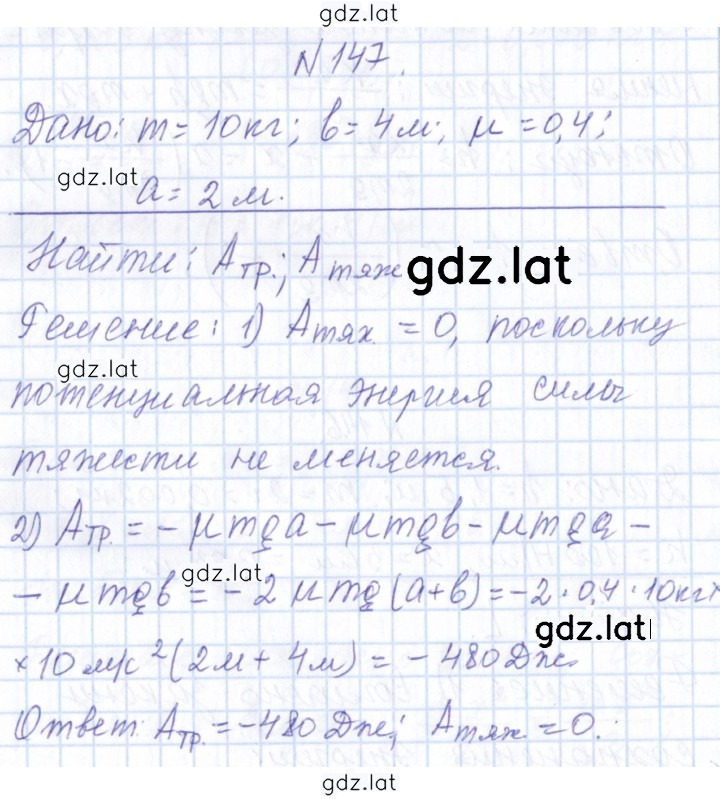 gdz.lat
N 147.
Дано: m = 10 кг; b = 4 м; μ = 0,4;
gdz.lat
a = 2 м.
Найти: Aтр.; Aтяж
gdz.lat
Решение: 1) Aтяж. = 0, поскольку
gdz.lat
потенциальная энергия силы
тяжести не меняется.
2) Aтр. = - μmga - μmgb - μmga -
gdz.lat
- μmgb = -2 μmg(a+b) = -2 · 0,4 · 10 кг ×
gdz.lat
× 10 м/с²(2м + 4м) = - 480 Дж.
Ответ: Aтр. = -480 Дж; Aтяж = 0.
gdz.lat